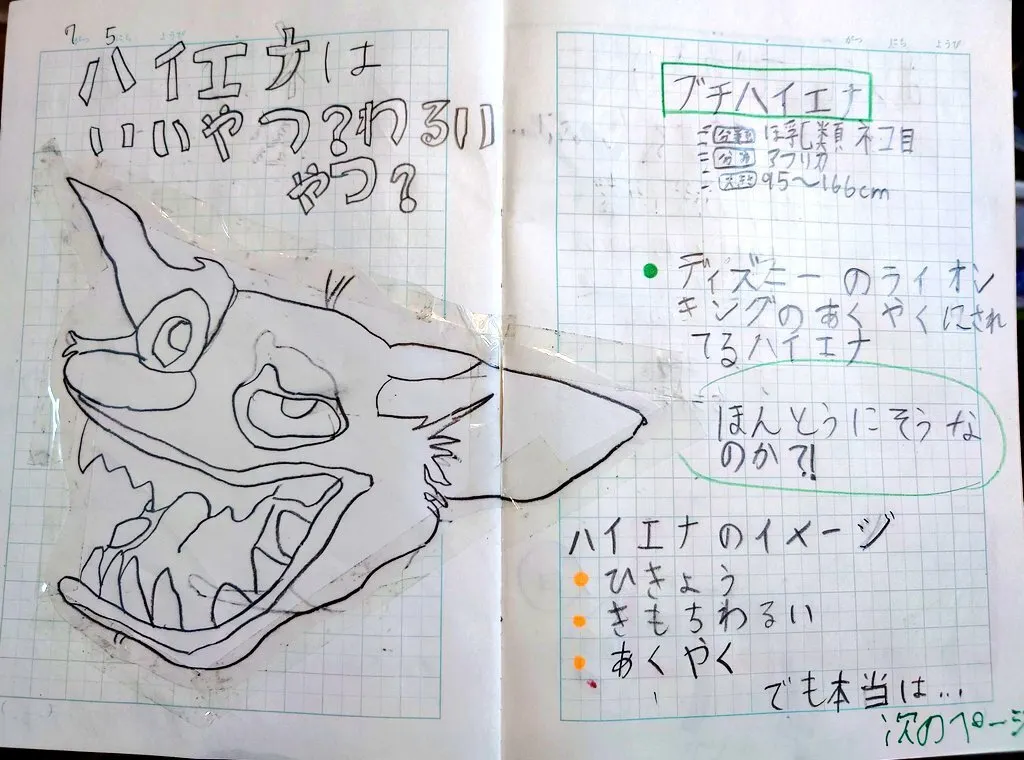 7 5
がつ にち ようび
ハイエナは
いいやつ？わるい
やつ？
がつ にち ようび
ブチハイエナ
分類 ほ乳類 ネコ目
分布 アフリカ
体長 95〜166cm
ディズニーのライオン
キングのあくやくにされ
てるハイエナ
ほんとうにそうな
のか？！
ハイエナのイメージ
ひきょう
きもちわるい
あくやく
でも本当は…
次のページ